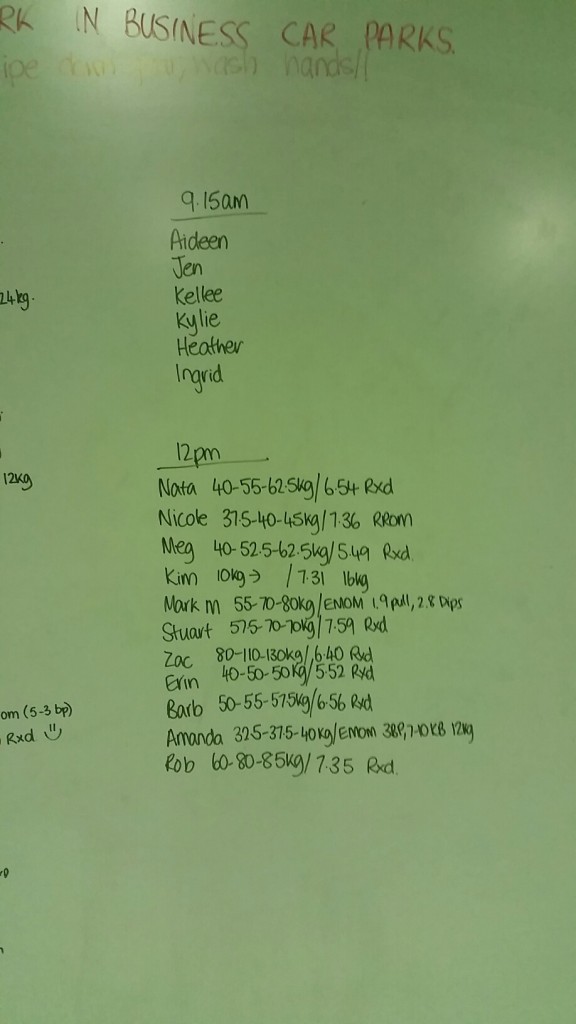 RK IN BUSINESS CAR PARKS.
ipe down wash hands!!
9.15am
Aideen
Jen
Kellee
Kylie
Heather
Ingrid
24kg.
12pm
12kg
Nata 40-55-62.5kg/6.54 Rxd
Nicole 37.5-40-45kg/7.36 RROM
Meg 40-52.5-62.5kg/5.49 Rxd.
Kim 10kg→ /7.31 16kg
Mark M 55-70-80kg/EMOM 1.9 pull, 2.8 Dips
Stuart 57.5-70-70kg/7.59 Rxd
Zac 80-110-130kg/6.40 Rxd
Erin 40-50-50kg/5.52 Rxd
Barb 50-55-57.5kg/6.56 Rxd
om (5-3 bp)
Rxd
Amanda 32.5-37.5-40kg/EMOM 3BP, 7-10 KB 12kg
Rob 60-80-85kg/7.35 Rxd.